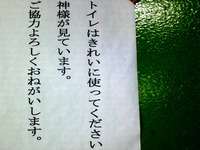 トイレはきれいに使ってください
神様が見ています。
ご協力よろしくおねがいします。